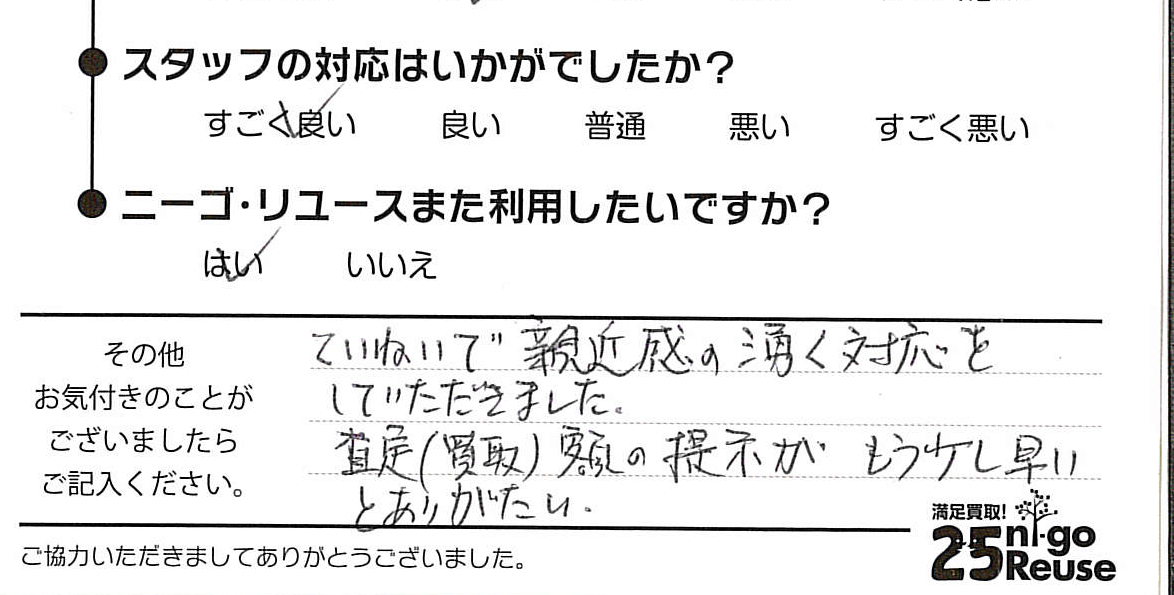 スタッフの対応はいかがでしたか?
すごく良い 良い 普通 悪い すごく悪い
ニーゴ・リユースまた利用したいですか?
はい いいえ
その他
お気付きのことが
ございましたら
ご記入ください。
ていねいで親近感の湧く対応を
していただきました。
査定(買取)額の提示がもう少し早い
とありがたい.
満足買取!
25 ni-go
Reuse
ご協力いただきましてありがとうございました。